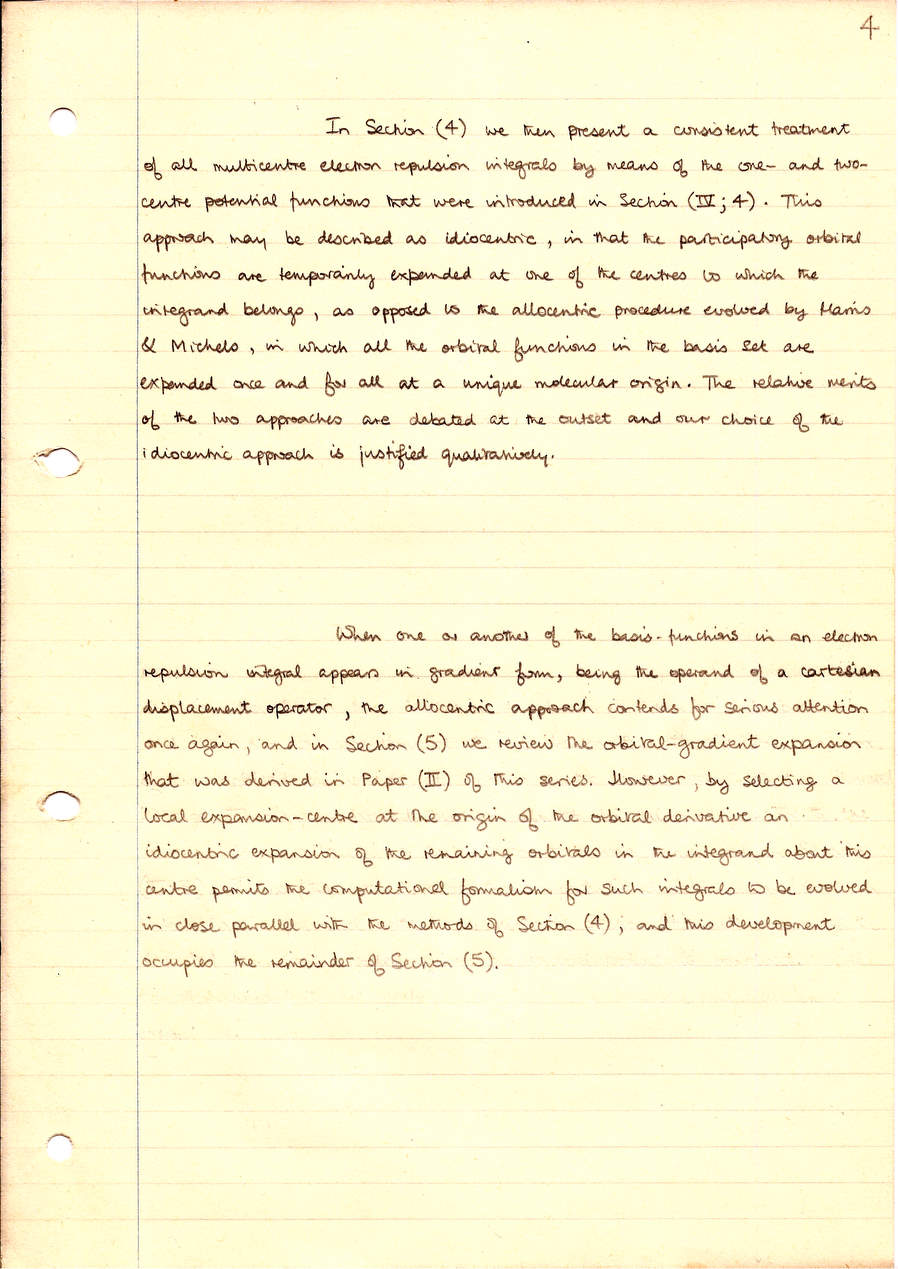 4
In Section (4) we then present a consistent treatment
of all multicentre electron repulsion integrals by means of the one- and two-
centre potential functions that were introduced in Section (IV; 4). This
approach may be described as idiocentric, in that the participatory orbital
functions are temporarily expanded at one of the centres to which the
integrand belongs, as opposed to the allocentric procedure evolved by Harris
& Michels, in which all the orbital functions in the basis set are
expanded once and for all at a unique molecular origin. The relative merits
of the two approaches are debated at the outset and our choice of the
idiocentric approach is justified qualitatively.
When one or another of the basis-functions in an electron
repulsion integral appears in gradient form, being the operand of a cartesian
displacement operator, the allocentric approach contends for serious attention
once again, and in Section (5) we review the orbital-gradient expansion
that was derived in Paper (II) of this series. However, by selecting a
local expansion-centre at the origin of the orbital derivative an
idiocentric expansion of the remaining orbitals in the integrand about this
centre permits the computational formalism for such integrals to be evolved
in close parallel with the methods of Section (4), and this development
occupies the remainder of Section (5).